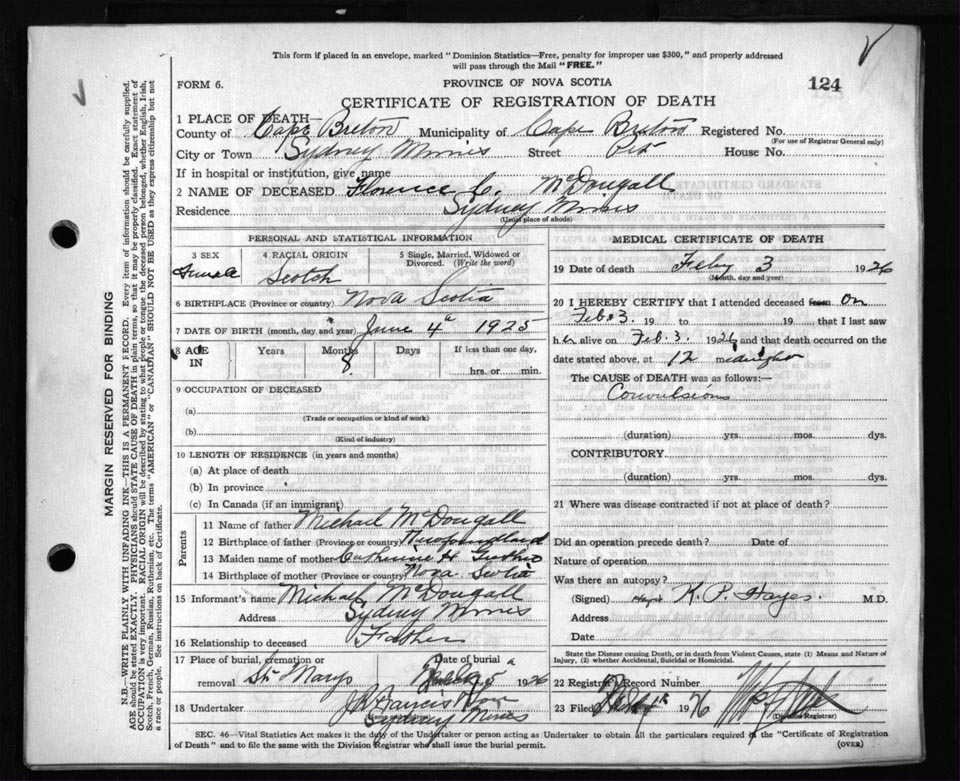 This form if placed in an envelope, marked "Dominion Statistics—Free, penalty for improper use $300," and properly addressed
will pass through the Mail "FREE."
FORM 6.
PROVINCE OF NOVA SCOTIA
124
CERTIFICATE OF REGISTRATION OF DEATH
1 PLACE OF DEATH—
County of Cape Breton Municipality of Cape Breton Registered No.
(For use of Registrar General only)
City or Town Sydney Mines Street Pitt House No.
If in hospital or institution, give name
2 NAME OF DECEASED Florence C. McDougall
Residence Sydney Mines
(Usual place of abode)
PERSONAL AND STATISTICAL INFORMATION
3 SEX 4 RACIAL ORIGIN 5 Single, Married, Widowed or
Divorced. (Write the word)
Female Scotch
6 BIRTHPLACE (Province or country) Nova Scotia
7 DATE OF BIRTH (month, day and year) June 4th 1925
8 AGE IN Years Months Days If less than one day,
8 hrs. or min.
9 OCCUPATION OF DECEASED
(a)
(Trade or occupation or kind of work)
(b)
(Kind of industry)
10 LENGTH OF RESIDENCE (in years and months)
(a) At place of death
(b) In province
(c) In Canada (if an immigrant)
Parents
11 Name of father Michael McDougall
12 Birthplace of father (Province or country) Newfoundland
13 Maiden name of mother Catherine H
14 Birthplace of mother (Province or country) Nova Scotia
15 Informant's name Michael McDougall
Address Sydney Mines
16 Relationship to deceased Father
17 Place of burial, cremation or Date of burial
removal St Marys 5 1926
18 Undertaker J R Francis
(Name and address)
Sydney Mines
MEDICAL CERTIFICATE OF DEATH
19 Date of death Feby 3 1926
(Month, day and year)
20 I HEREBY CERTIFY that I attended deceased from on
Feb. 3. 19 to 19 , that I last saw
her alive on Feb. 3. 1926 and that death occurred on the
date stated above, at 12 m
The CAUSE of DEATH was as follows:—
Convulsions
(duration) yrs. mos. dys.
CONTRIBUTORY
(duration) yrs. mos. dys.
21 Where was disease contracted if not at place of death?
Did an operation precede death? Date of
Nature of operation
Was there an autopsy?
(Signed) K. P. Hayes. M D.
Address
Date
State the Disease causing Death, or in death from Violent Causes, state (1) Means and Nature of
Injury, (2) whether Accidental, Suicidal or Homicidal.
22 Registrar's Record Number
23 Filed 1926
(Division Registrar)
SEC. 46—Vital Statistics Act makes it the duty of the Undertaker or person acting as Undertaker to obtain all the particulars required in the "Certificate of Registration
of Death" and to file the same with the Division Registrar who shall issue the burial permit.
(OVER)
MARGIN RESERVED FOR BINDING
N.B.—WRITE PLAINLY WITH UNFADING INK—THIS IS A PERMANENT RECORD. Every item of information should be carefully supplied.
AGE should be stated EXACTLY. PHYSICIANS should STATE CAUSE OF DEATH in plain terms, so that it may be properly classified. Exact statement of
OCCUPATION is very important. RACIAL ORIGIN will be described by stating to what people or tongue the deceased person belonged, whether English, Irish,
Scotch, French, German, Russian, Ruthenian, etc. The terms "AMERICAN" or "CANADIAN" SHOULD NOT BE USED as they express citizenship but not
a race or people. See instructions on back of Certificate.